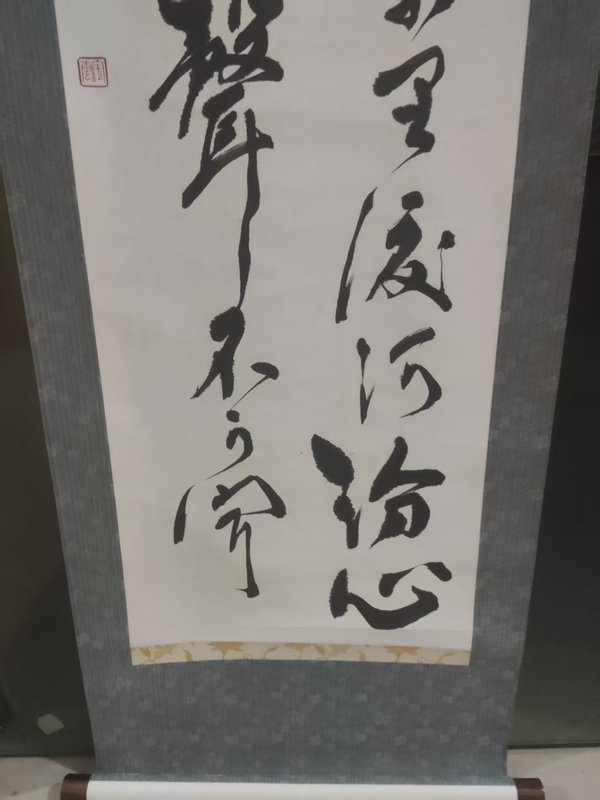 里渡河汾心
聲不可聞